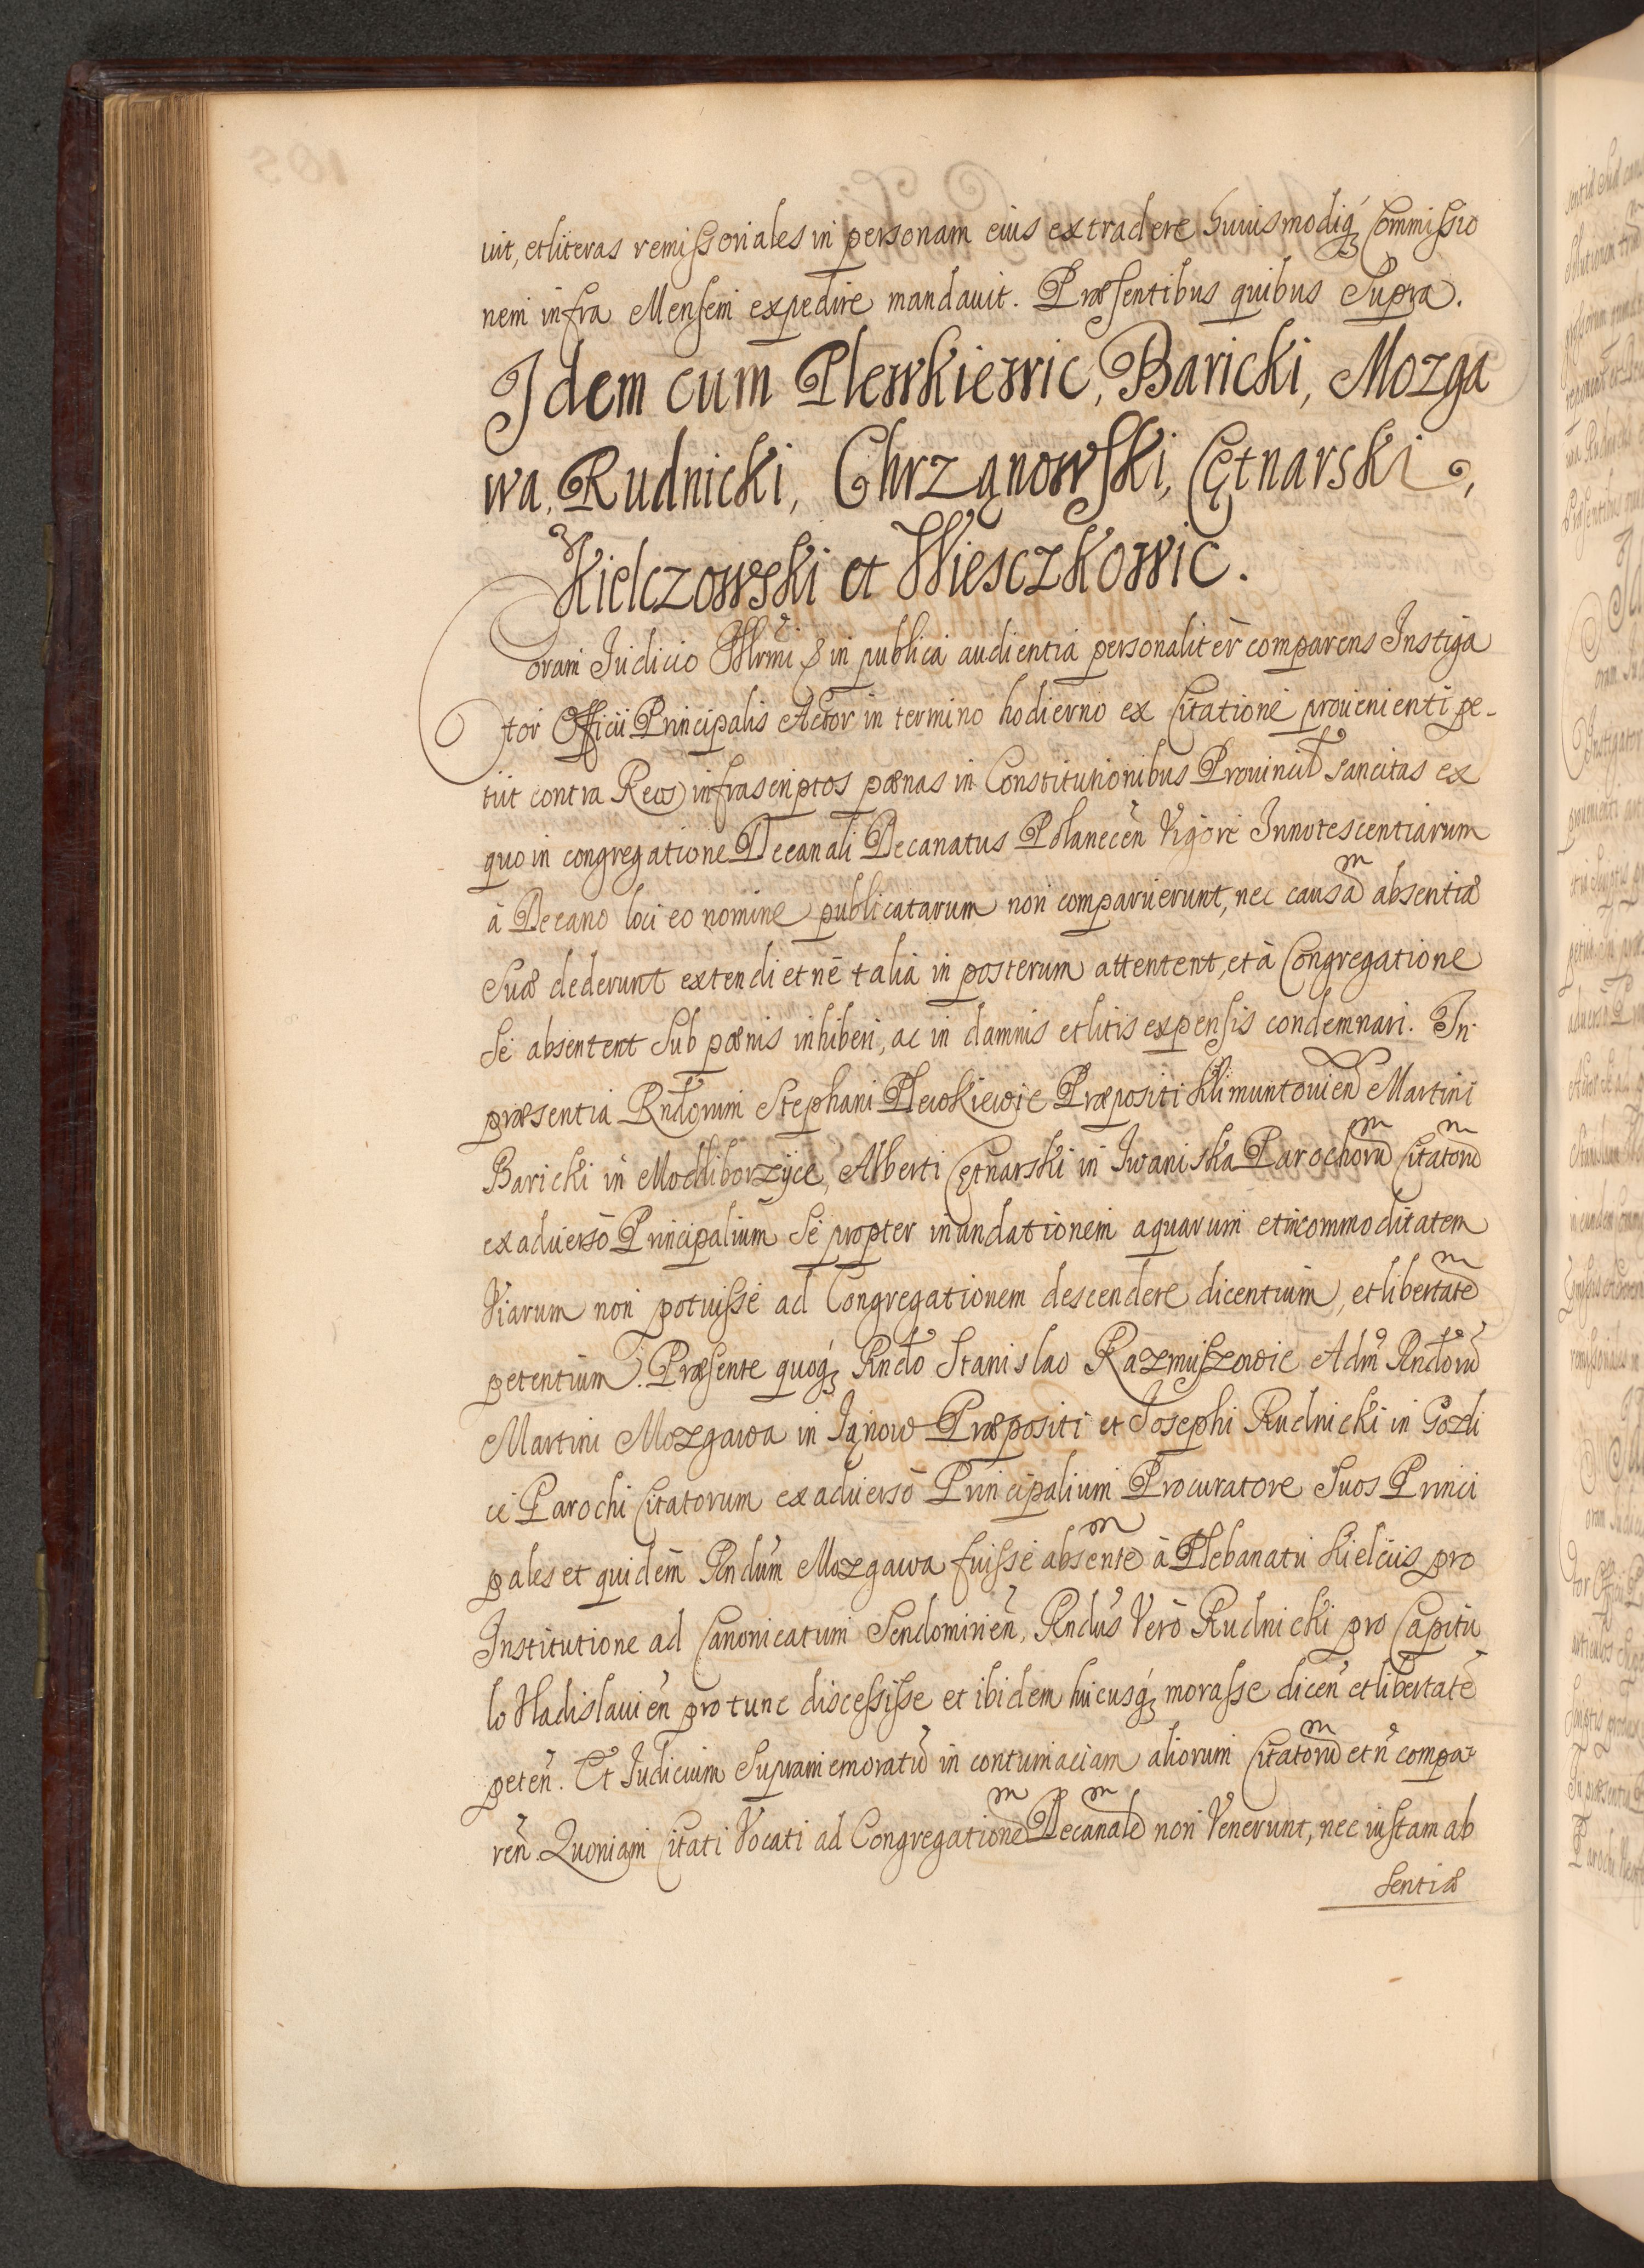 uit, et literas remissoriales in personam eius extradere huiusmodiq₃ Commissio
nem infra Mensem expedire mandauit. Præsentibus quibus Supra.
Idem cum Plewkiewic, Baricki, Mozga
wa, Rudnicki, Chrzanowski, Cętnarski,
Kielczowski et Wiesczkowic.
Coram Iudicio Illrmi & in publica audientia personaliter comparens Instiga
tor Officii Principalis Actor in termino hodierno ex Citatione prouenienti pe-
tiit contra Reos infrascriptos pœnas in Constitutionibus Prouincial sancitas ex
quo in congregatione Decanali Decanatus Polanecen̄ Vigore Innotescentiarum
à Decano loci eo nomine publicatarum non comparuerunt, nec causam absentiæ
Suæ dederunt extendi et ne talia in posterum attentent, et à Congregatione
se absentent Sub pœnis inhiberi, ac in damnis et litis expensis condemnari. In
præsentia Rndorum Stephani Plewkiewic Præpositi Klimuntouien̄ Martini
Baricki in Modliborzyce, Alberti Cętnarski in Iwaniska Parochorum Citatorum
ex aduerso Principalium Se propter inundationem aquarum et incommoditatem
Viarum non potuisse ad Congregationem descendere dicentium, et libertatem
petentium. Præsente quoq₃ Rndo Stanislao Razmuszowic Adm̄ Rndorū
Martini Mozgawa in Ianow Præpositi et Iosephi Rudnicki in Gozli
ce Parochi Citatorum ex aduerso Principalium Procuratore Suos Princi
pales et quidem Rndum Mozgawa fuisse absentem à Plebanatu Kielciis pro
Institutione ad Canonicatum Sendomirien̄, Rndus Vero Rudnicki pro Capitu
lo Vladislauien̄ pro tunc discessisse et ibidem hucusq₃ morasse dicen̄ et libertatē
peten̄. Et Iudicium Supramemoratū in contumaciam aliorum Citatorum et n̄ compa-
ren̄. Quoniam Citati Vocati ad Congregationem Decanalem non Venerunt, nec iustam ab
sentiæ